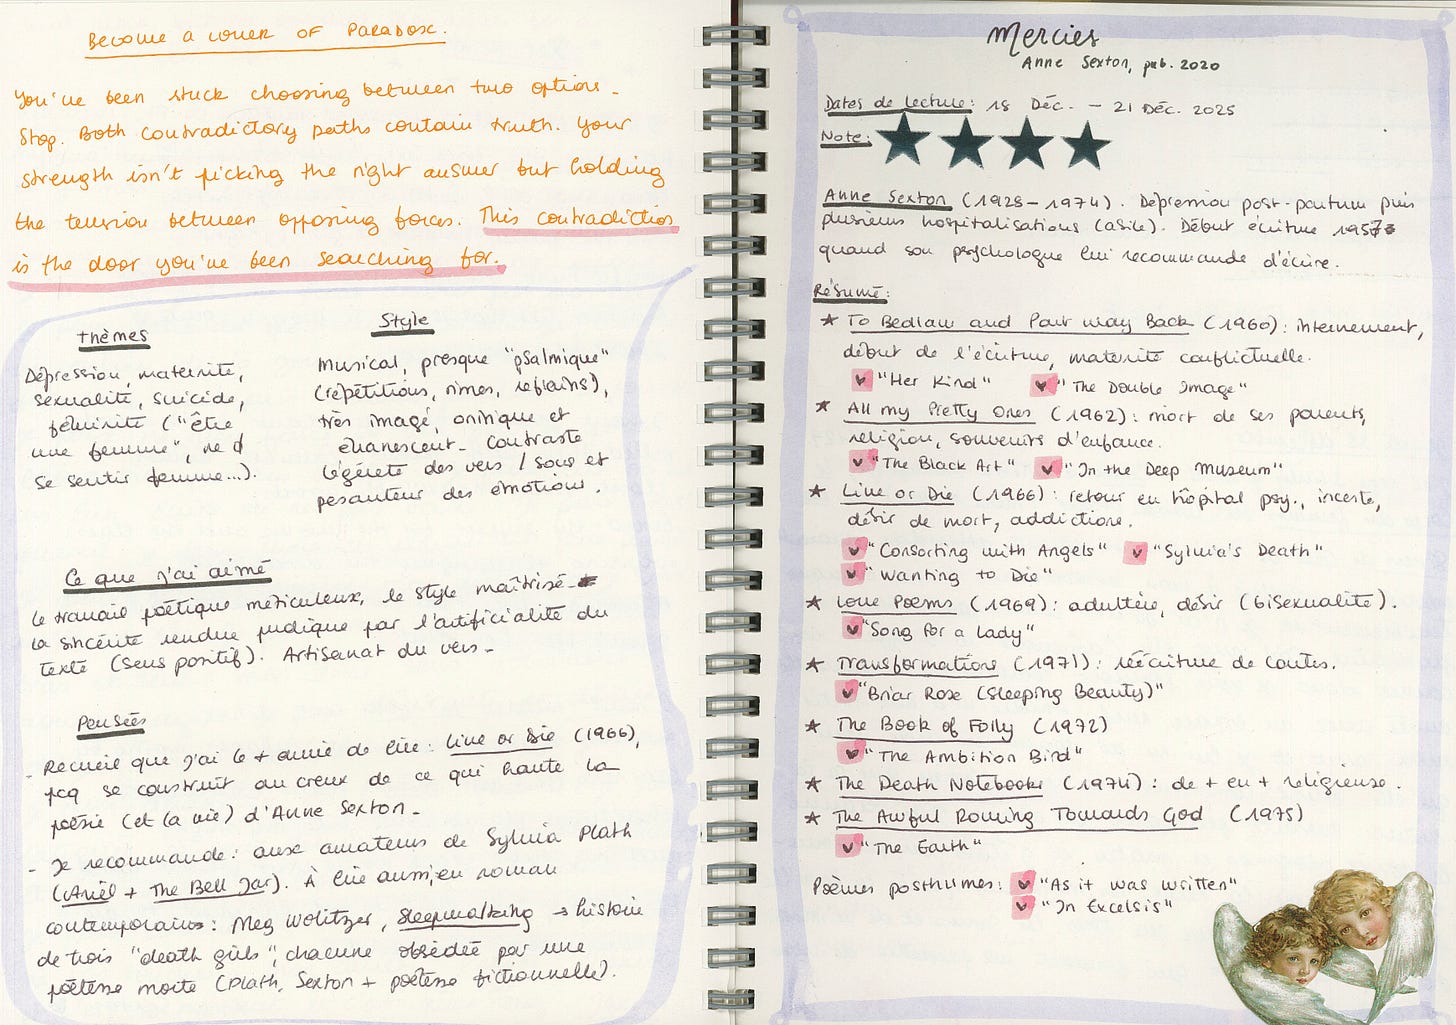 Become a lover of Paradox.
You've been stuck choosing between two options.
Stop. Both contradictory paths contain truth. Your
strength isn't picking the right answer but holding
the tension between opposing forces. This contradiction
is the door you've been searching for.
Thèmes
Dépression, maternité,
sexualité, suicide,
féminité ("être
une femme", ne
se sentir femme...).
Style
Musical, presque "psalmique"
(répétitions, rimes, refrains),
très imagé, onirique et
évanescent. Contraste
légèreté des vers / sons et
pesanteur des émotions.
Ce que j'ai aimé
Le travail poétique méticuleux, le style maîtrisé.
La sincérité rendue pudique par l'artificialité du
texte (sens positif). Artisanat du vers.
Pensées
- Recueil que j'ai le + aimé de lire : Live or Die (1966),
pcq se construit au creux de ce qui hante la
poésie (et la vie) d'Anne Sexton.
- Je recommande : aux amateurs de Sylvia Plath
(Ariel + The Bell Jar). À lire aussi, en roman
contemporain : Meg Wolitzer, Sleepwalking → histoire
de trois "death girls", chacune obsédée par une
poétesse morte (Plath, Sexton + poétesse fictionnelle).
Mercies
Anne Sexton, pub. 2020
Dates de lecture : 18 Déc. – 21 Déc. 2025
Note :
Anne Sexton (1928–1974). Dépression post-partum puis
plusieurs hospitalisations (asile). Début écriture 1957
quand son psychologue lui recommande d'écrire.
Résumé :
★ To Bedlam and Part Way Back (1960) : internement,
début de l'écriture, maternité conflictuelle.
♥ "Her Kind" ♥ "The Double Image"
★ All my Pretty Ones (1962) : mort de ses parents,
religion, souvenirs d'enfance.
♥ "The Black Art" ♥ "In the Deep Museum"
★ Live or Die (1966) : retour en hôpital psy., inceste,
désir de mort, addictions.
♥ "Consorting with Angels" ♥ "Sylvia's Death"
♥ "Wanting to Die"
★ Love Poems (1969) : adultère, désir (bisexualité).
♥ "Song for a Lady"
★ Transformations (1971) : réécriture de contes.
♥ "Briar Rose (Sleeping Beauty)"
★ The Book of Folly (1972)
♥ "The Ambition Bird"
★ The Death Notebooks (1974) : de + en + religieuse.
★ The Awful Rowing Towards God (1975)
♥ "The Earth"
Poèmes posthumes : ♥ "As it was written"
♥ "In Excelsis"